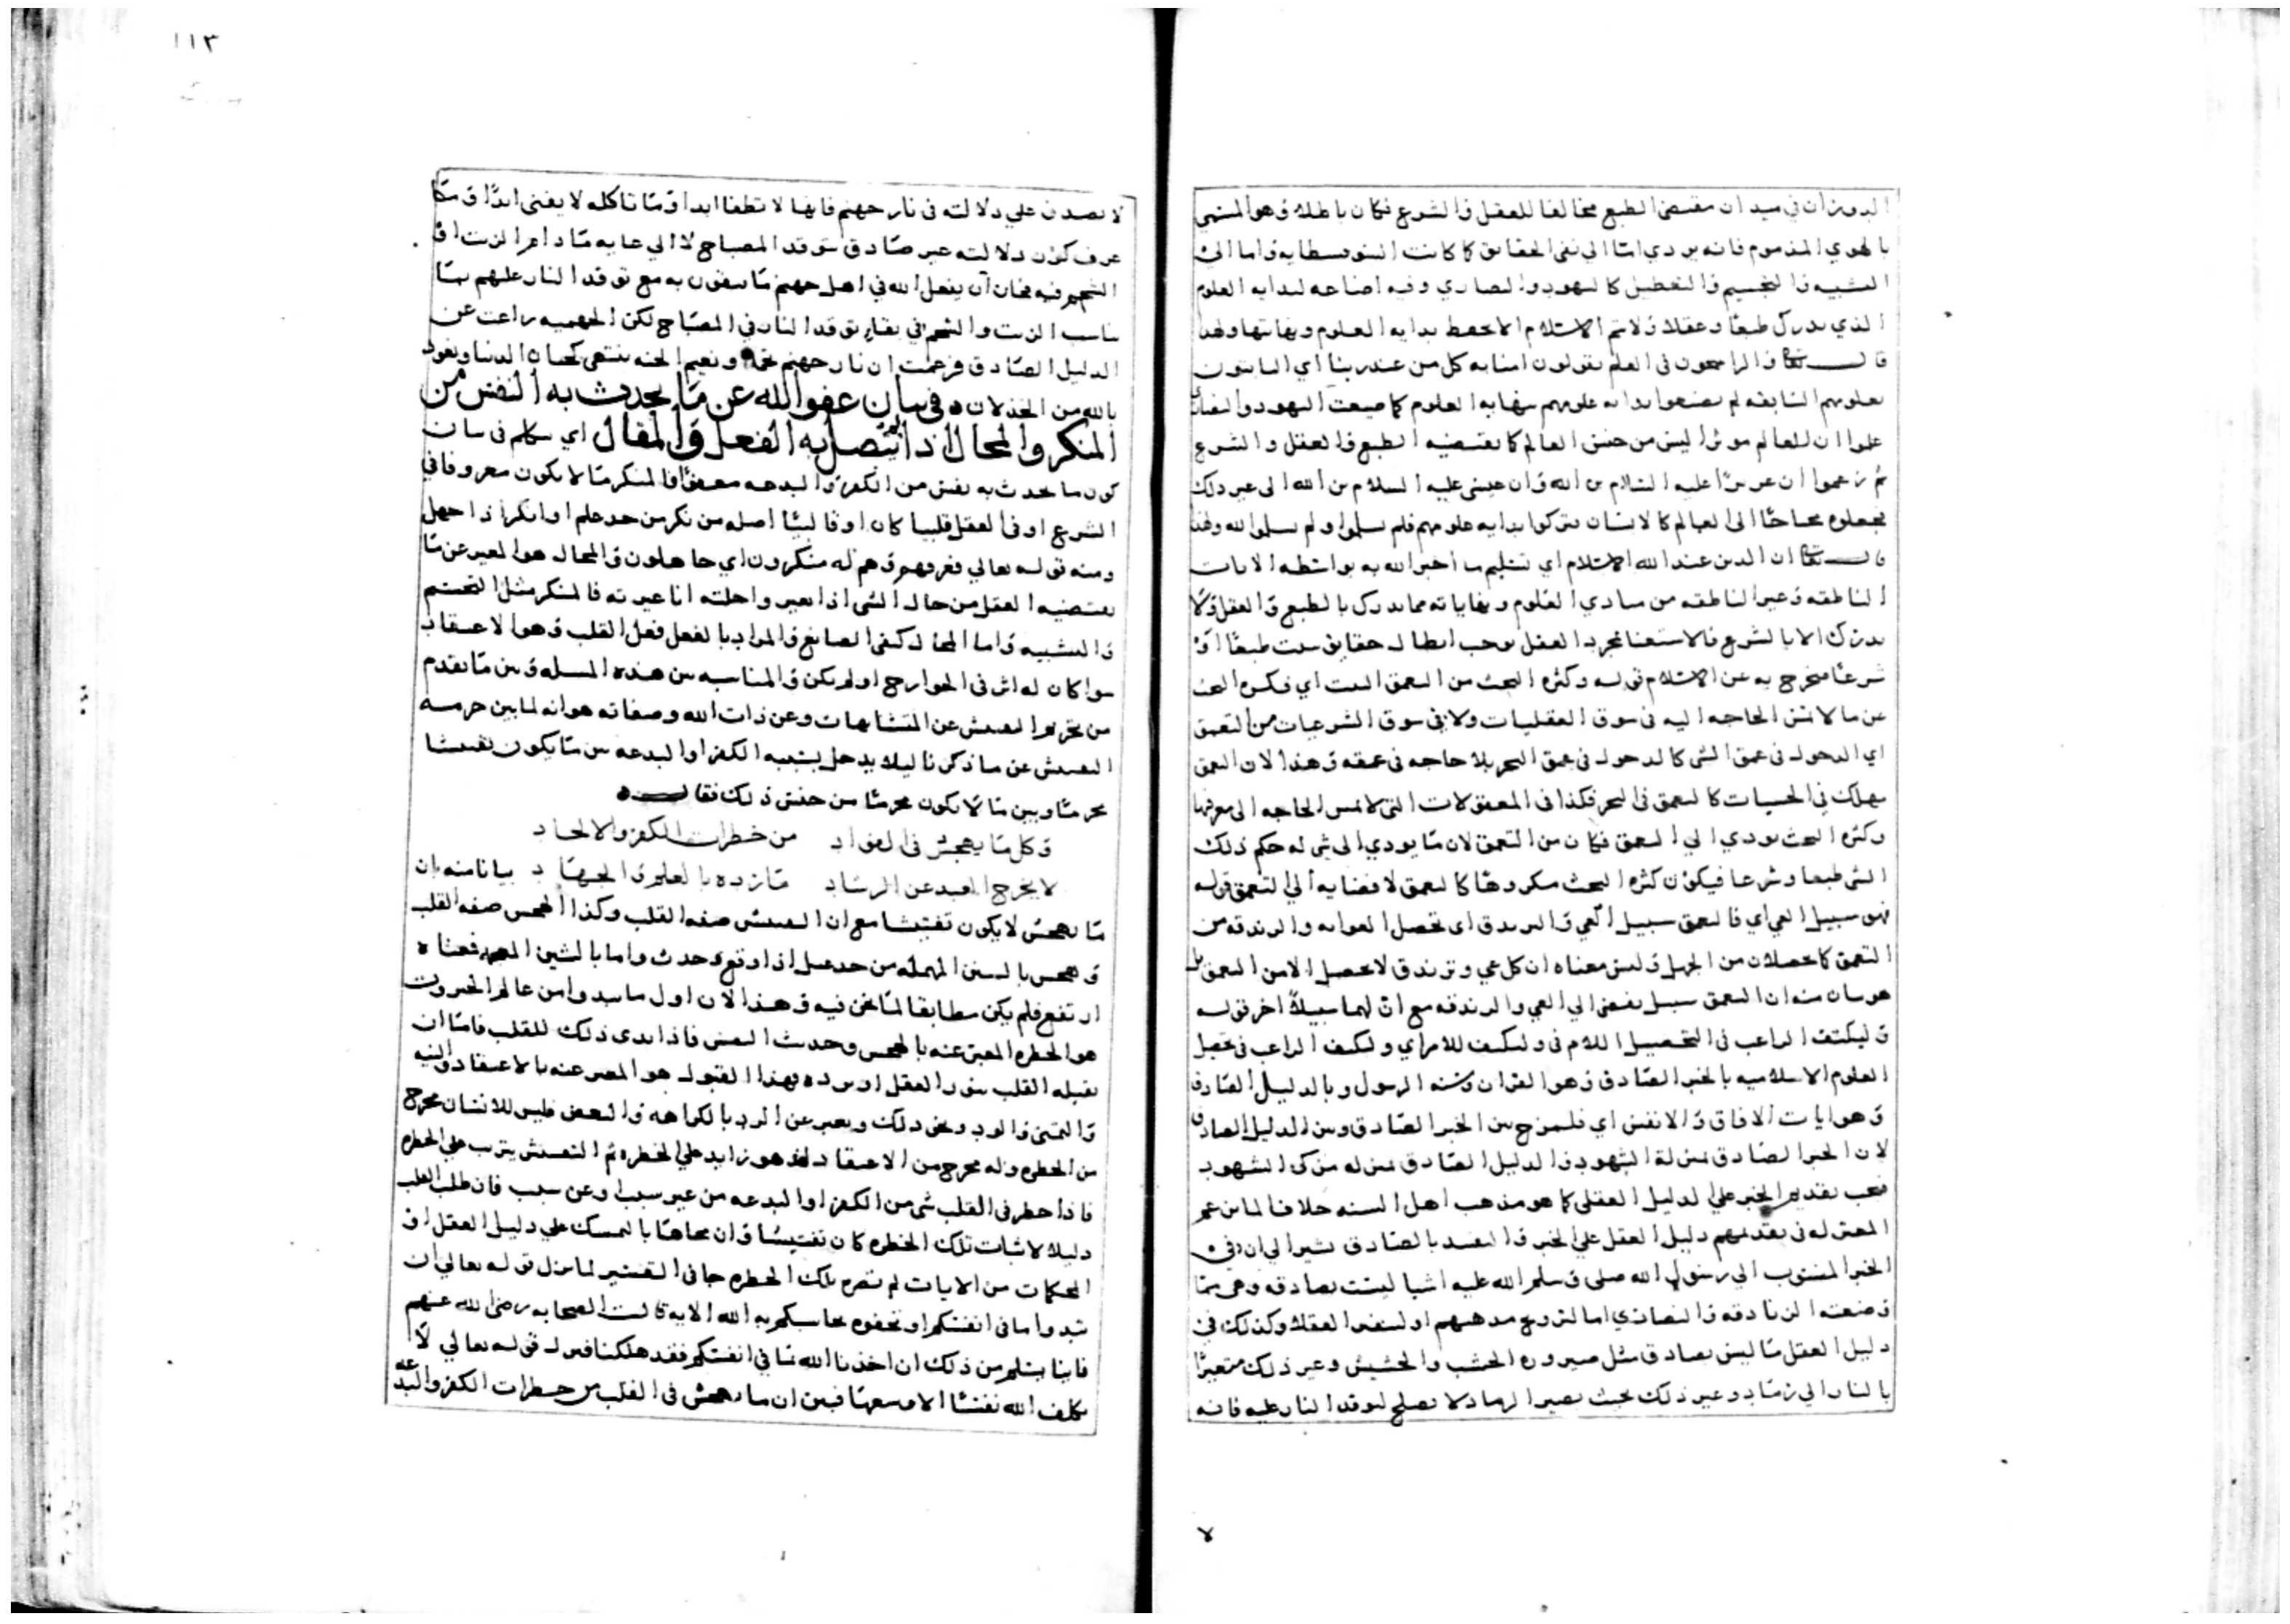 الدوران في ميدان مقتضى الطبع مخالفا للعقل والشرع فكان باطلا وهو المسمى
بالهوي المذموم فانه يودي اما الى نفي الحقائق كما كانت السوفسطايه واما الى
التشبيه والتجسيم والتعطيل كاليهود والنصاري وفيه اضاعه لبدايه العلوم
الذي يدرك طبعا وعقلا ولا يتم الاسلام الا بحفظ بدايه العلوم ونهايتها ولهذا
قال تعالى والراسخون في العلم يقولون امنا به كل من عند ربنا اي الثابتون
بعلومهم السابقه لم يضيعوا بدايه علومهم بنهايه العلوم كما ضيعت اليهود والنصارى
علموا ان للعالم موثرا ليس من جنس العالم كما يقتضيه الطبع والعقل والشرع
ثم زعموا ان عزيرا عليه السلام بن الله وان عيسى عليه السلام بن الله الى غير ذلك
فجعلوه محتاجا الى العالم كالانسان فتركوا بدايه علومهم فلم يسلموا ولم يسلموا لله ولهذا
قال تعالى ان الدين عند الله الاسلام اي تسليم ما اخبر الله به بواسطه الايات
الناطقه وغير الناطقه من مبادي العلوم ونهاياته مما يدرك بالطبع والعقل ولا
يدرك الا بالشرع فالاستغنا بمجرد العقل يوجب ابطال حقايق ثبتت طبعا او
شرعا فيخرج به عن الاسلام قوله وكثره البحث من التعمق البت اي فكثره البحث
عن ما لا تمس الحاجه اليه في سوق العقليات ولا في سوق الشرعيات من التعمق
اي الدخول في عمق الشي كالدخول في عمق البحر بلا حاجه في عمقه وهذا لان التعمق
يهلك في الحسيات كالتعمق في البحر فكذا في المعقولات التي لا تمس الحاجه الى معرفتها
وكثره البحث يودي الى التعمق فكان من التعمق لان ما يودي الى شي له حكم ذلك
الشي طبعا وشرعا فيكون كثره البحث مكروها كالتعمق لافضايه الى التعمق قوله
فهو سبيل العي اي فالتعمق سبيل العي والتزندق اي تحصل الغوايه والزندقه من
التعمق كما يحصلان من الجهل وليس معناه ان كل عي وتزندق لا يحصل الا من التعمق بل
هو بيان منه ان التعمق سبيل يفضي الى العي والزندقه مع ان لهما سبيلا اخر قوله
وليكتف الراغب في التحصيل اللام في وليكتف للامر اي وليكتف الراغب في تحصيل
العلوم الاسلاميه بالخبر الصادق وهو القران وسنه الرسول وبالدليل الصادق
وهو ايات الافاق والانفس اي فليمزج بين الخبر الصادق وبين الدليل الصادق
لان الخبر الصادق بمنزلة الشهود والدليل الصادق بمنزله مزكى الشهود
فيجب تقديم الخبر على الدليل العقلي كما هو مذهب اهل السنه خلافا لما زعم
المعتزله في تقديمهم دليل العقل على الخبر والتقييد بالصادق يشير الى ان في
الخبر المنسوب الى رسول الله صلى وسلم الله عليه اشيا ليست بصادقه وهي مما
وضعته الزنادقه والنصاري اما لترويج مذهبهم او لتنفير العقلا وكذلك في
دليل العقل ما ليس بصادق مثل صيروره الخشب والحشيش وغير ذلك متغيرا
بالنار الى رماد وغير ذلك بحيث يصير الرماد لا يصلح لتوقد النار عليه فانه
لا
١١٣
لا يصدق على دلالته في نار جهنم فانها لا تطفا ابدا وما تاكله لا يفنى ابدا وما
عرف كون دلالته غير صادق بتوقد المصباح لا الى غايه ما دام الزيت او
الشحم فيه فجاز ان يفعل الله في اهل جهنم ما يبقون به مع توقد النار عليهم بما
يناسب الزيت والشحم في بقاء توقد النار في المصباح لكن الجهميه زاغت عن
الدليل الصادق فزعمت ان نار جهنم تخمد ونعيم الجنه ينتهي كجنان الدنيا ونعوذ
بالله من الخذلان في بيان عفو الله عن ما يحدث به النفس من
المنكر والمحال اذا لم يتصل به الفعل والمقال اي نتكلم في بيان
كون ما يحدث به نفس من الكفر والبدعه معفوا فالمنكر ما لا يكون معروفا في
الشرع او في العقل قلبيا كان او قالبيا اصله من نكر من حد علم او انكر اذا جهل
ومنه قوله تعالي فعرفهم وهم له منكرون اي جاهلون والمحال هو المغير عن ما
يقتضيه العقل من حال الشي اذا تغير واحلته انا غيرته فالمنكر مثل التجسم
والتشبيه واما المحال كنفي الصانع والمراد بالفعل فعل القلب وهو الاعتقاد
سوا كان له اثر في الجوارح او لم يكن والمناسبه بين هذه المسله وبين ما تقدم
من تحريم التفتيش عن المتشابهات وعن ذات الله وصفاته هو انه لما بين حرمه
التفتيش عن ما ذكرنا ليلا يدخل بسببه الكفر او البدعه بين ما يكون تفتيشا
محرما وبين ما لا يكون محرما من جنس ذلك فقال
وكل ما يهجس في الفواد من خطرات الكفر والالحاد
لا يخرج العبد عن الرشاد ما زده بالعلم والجهاد بيانا منه ان
ما يهجس لا يكون تفتيشا مع ان التفتيش صفه القلب وكذا الهجس صفه القلب
وهجس بالسين المهمله من حد عسل اذا وقع وحدث واما بالشين المعجمه فمعناه
ارتفع فلم يكن مطابقا لما نحن فيه وهذا لان اول ما يبدوا من عالم الجبروت
هو الخطره المعبر عنه بالهجس وحدث النفس فاذا بدى ذلك للقلب فاما ان
يقبله القلب بنور العقل او يرده فهذا القبول هو المعبر عنه بالاعتقاد والنيه
والتمنى والود ونحو ذلك ويعبر عن الرد بالكراهه والبعض فليس للانسان مخرج
من الخطره وله مخرج من الاعتقاد اذ هو زايد على الخطره ثم التفتيش يترتب على الخطره
فاذا خطر في القلب شي من الكفر او البدعه من غير سبب او عن سبب فان طلب القلب
دليلا لاثبات تلك الخطره كان تفتيشا وان محاها بالتمسك على دليل العقل او
المحكمات من الايات لم تضره تلك الخطره جا في التفسير لما نزل قوله تعالي ان
تبدوا ما في انفسكم او تخفوه يحاسبكم به الله الايه قالت الصحابه رضي الله عنهم
فاينا يسلم من ذلك ان اخذنا الله بما في انفسكم فقد هلكنا فنزل قوله تعالي لا
يكلف الله نفسا الا وسعها فبين ان ما يهجس في القلب من خطرات الكفر والبدعه